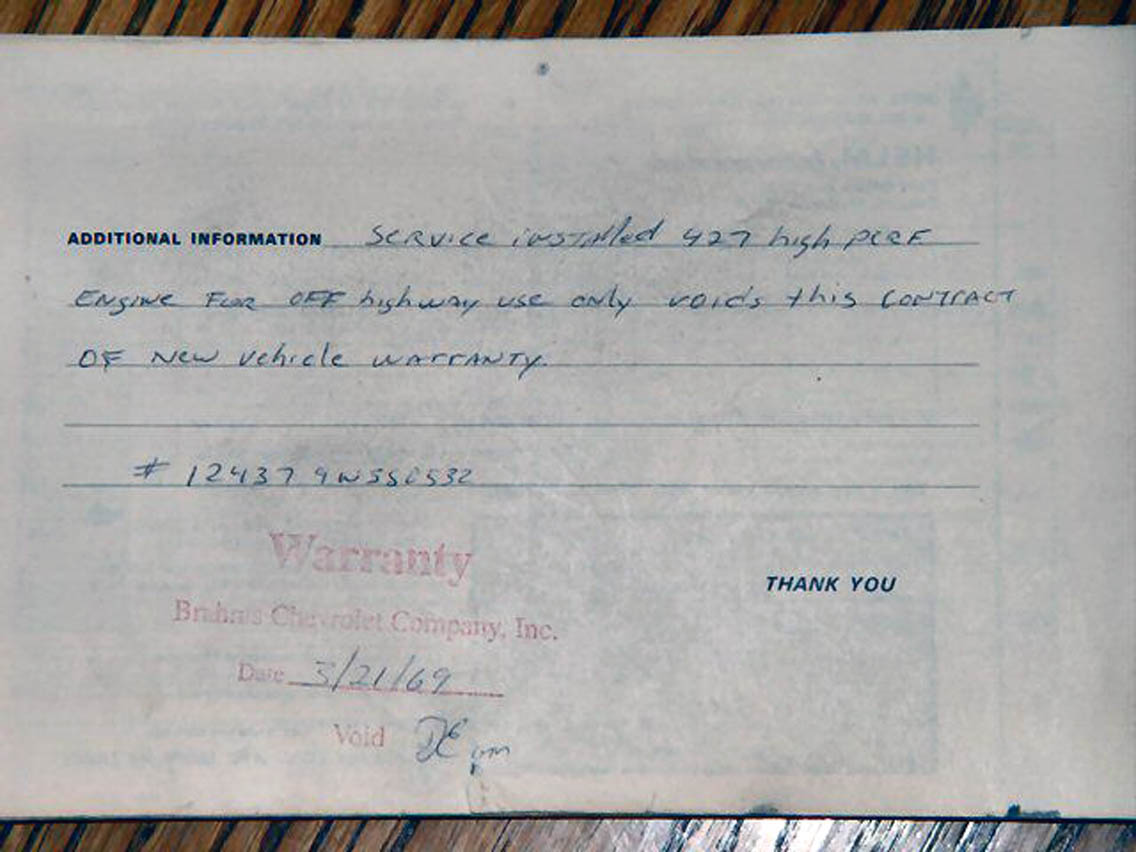 ADDITIONAL INFORMATION Service installed 427 high perf
Engine for off highway use only voids this contract
of new vehicle warranty.
# 12437 9W
Warranty
Brahms Chevrolet Company, Inc.
Date 3/21/69
Void
THANK YOU